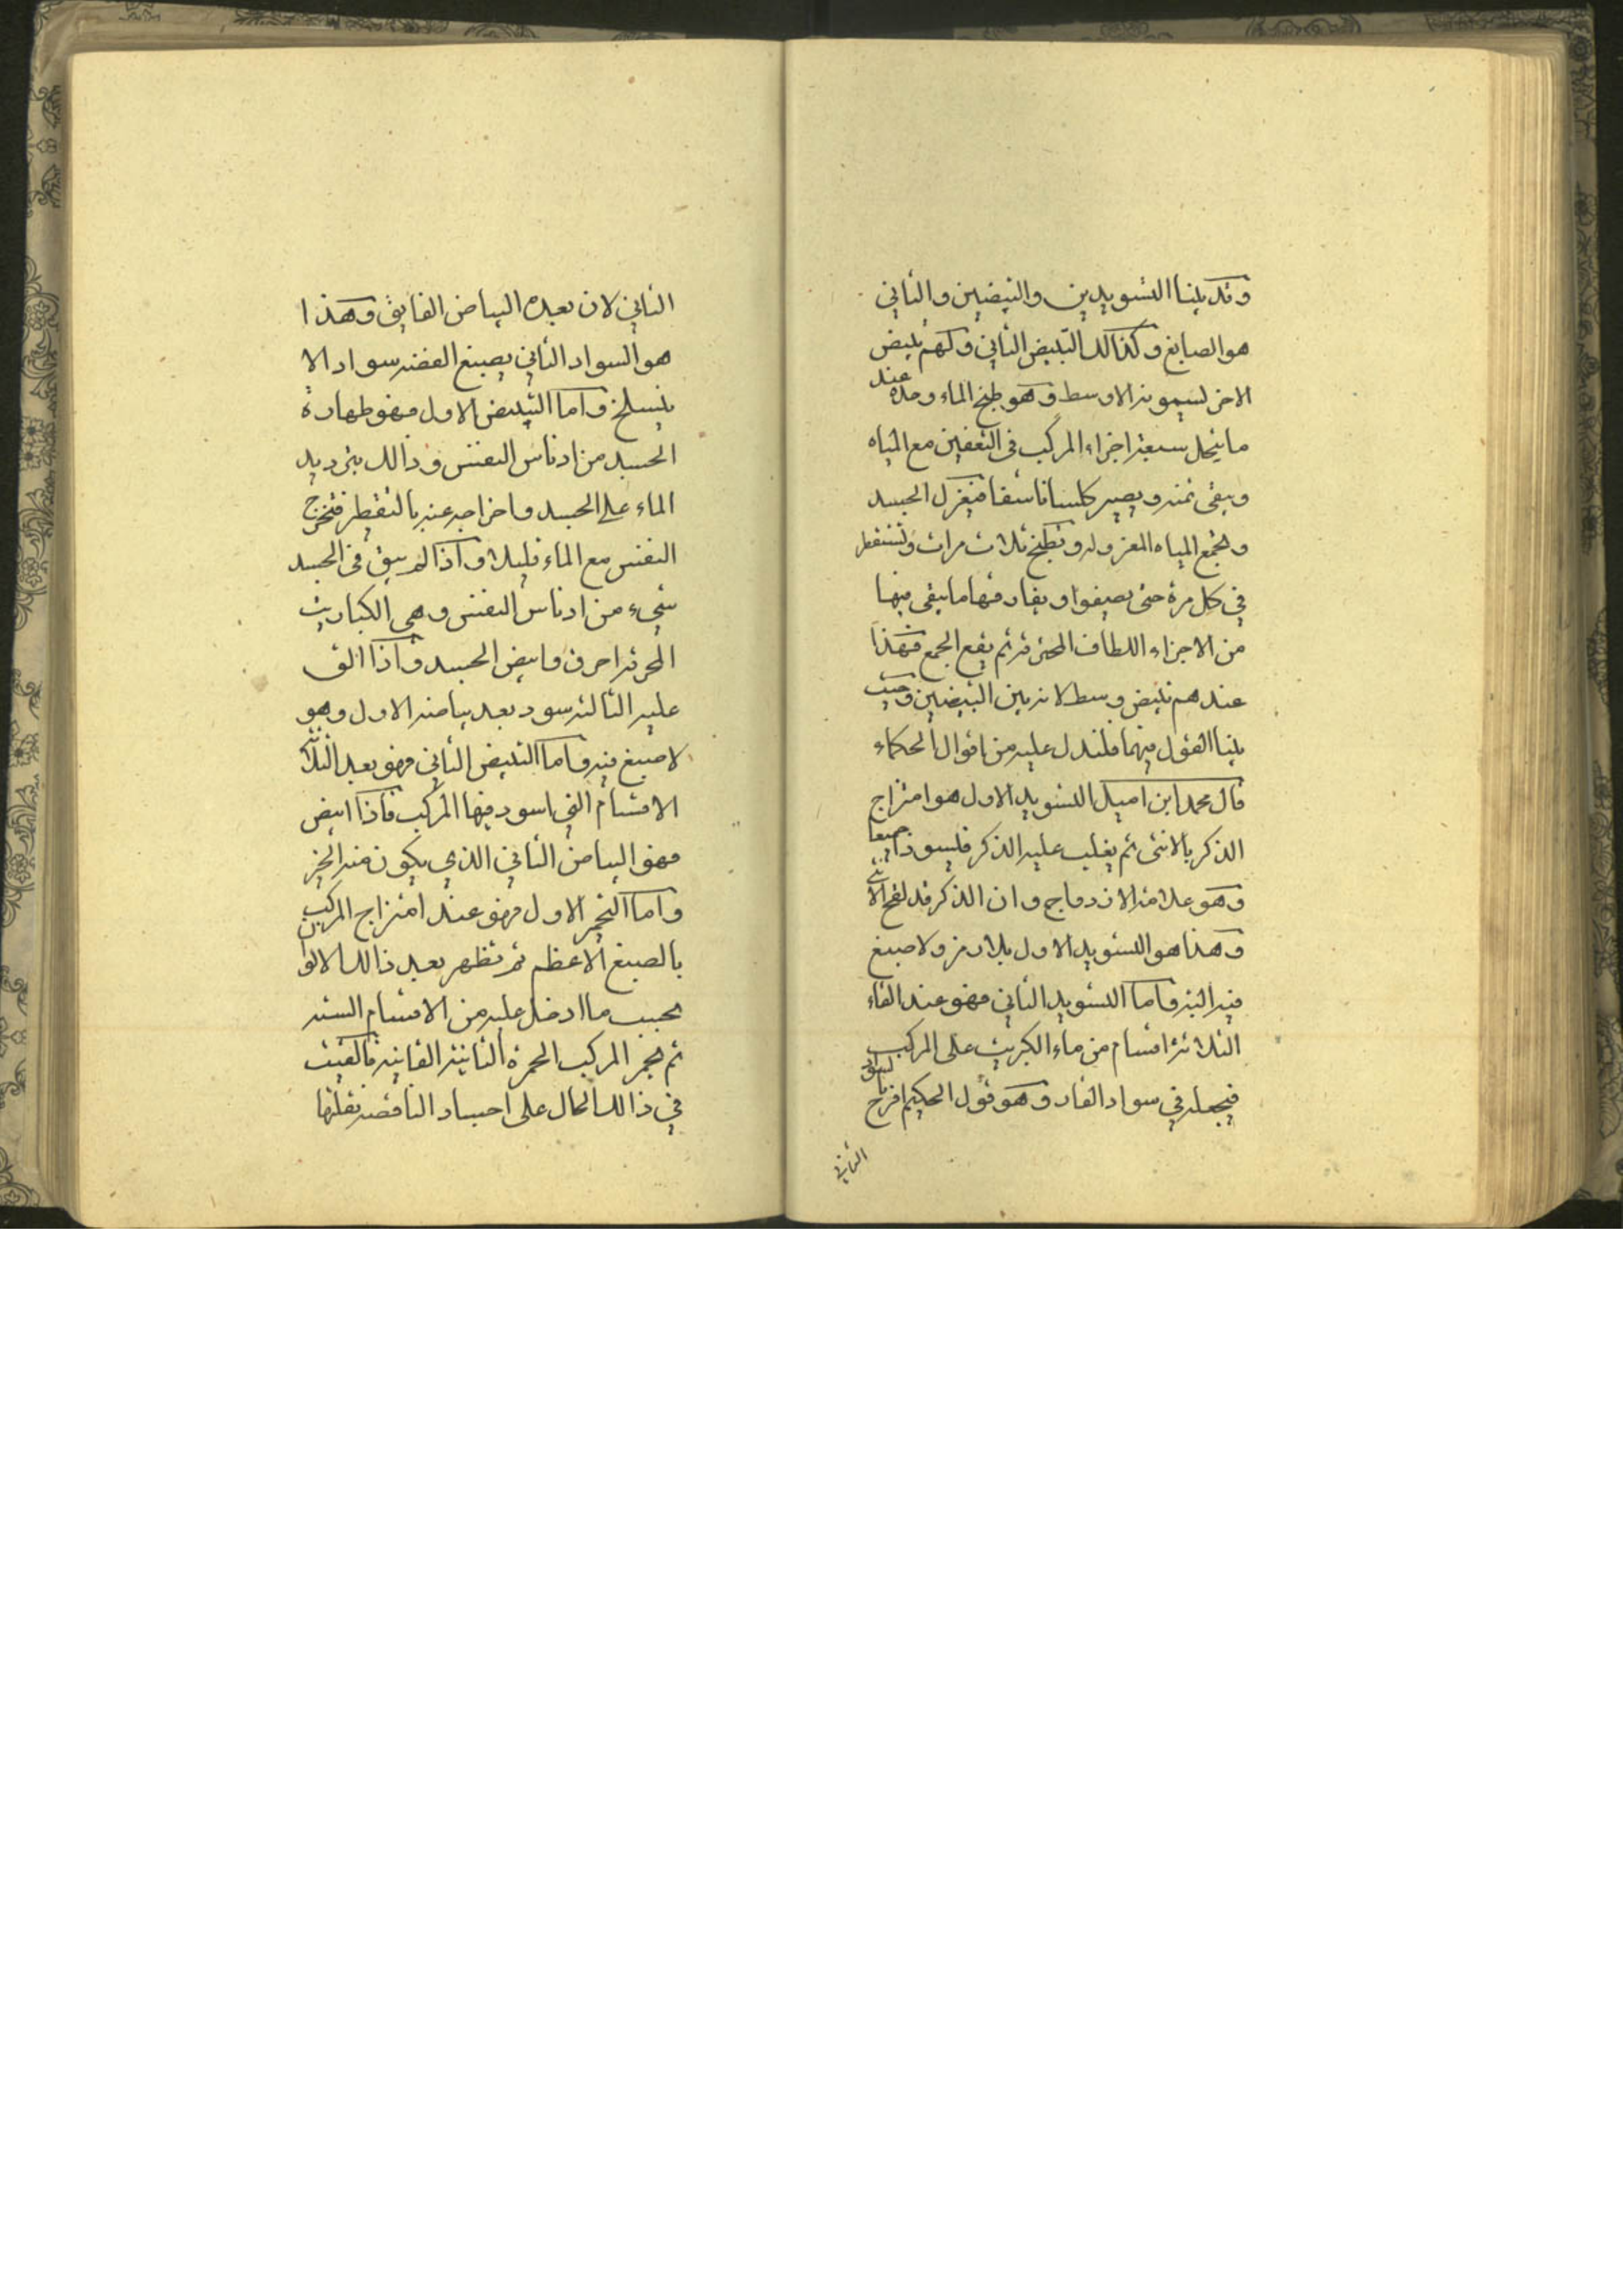 وقد بينا التسويدين والتبيضين والثاني
هو الصابغ وكذالك التبييض الثاني ولهم تبيض
الاخر يسمونه الاوسط وهو طبخ الماء وحده عند
ما ينحل سبعة اجزاء المركب فى التعفين مع المياه
ويبقى ثمنه ويصير كلسا ناشفا فيعزل الجسد
وتجمع المياه المعزوله وتطبخ ثلاث مرات وتستقطر
في كل مرة حتى يصفوا ويفارقها ما يبقى فيها
من الاجزاء اللطاف المحترقه ثم يقع الجمع فهذا
عندهم تبيض وسط لانه بين التبيضين وحيث
بينا القول فيهما فلندل عليه من اقوال الحكماء
قال محمد ابن اميل التسويد الاول هو امتزاج
الذكر بالانثى ثم يغلب عليه الذكر فليسودا جميعا
وهو علامة الازدواج وان الذكر قد لقح الانثى
وهذا هو التسويد الاول بلا رمز ولا صبغ
فيه البته واما التسويد الثاني فهو عند القاء
الثلاثة اقسام من ماء الكبريت على المركب
فيجعله في سواد القار وهو قول الحكيم افرح بالسواد
الثاني
الثاني لان بعده البياض الفايق وهذا
هو السواد الثاني يصبغ الفضه سواد الا
ينسلخ واما التبييض الاول فهو طهارة
الجسد من ادناس النفس وذالك بترديد
الماء على الجسد واخراجه عنه بالتقطير فتخرج
النفس مع الماء قليلا واذا لم يبق فى الجسد
شيء من ادناس النفس وهى الكباريت
المحرقه احرق وابيض الجسد واذا القى
عليه الثالثه سود بعد بياضه الاول وهو
لا صبغ فيه واما التبييض الثاني فهو بعد الثلاثة
الاقسام التي اسود فيها المركب فاذا ابيض
فهو البياض الثاني الذي يكون منه الخير
واما التحمير الاول فهو عند امتزاج المركب
بالصبغ الاعظم ثم تظهر بعد ذالك الالوان
بحسب ما ادخل عليه من الاقسام السته
ثم يحمر المركب الحمرة الثانية القانيه فالقيت
في ذالك الحال على اجساد الناقصه نقلتها